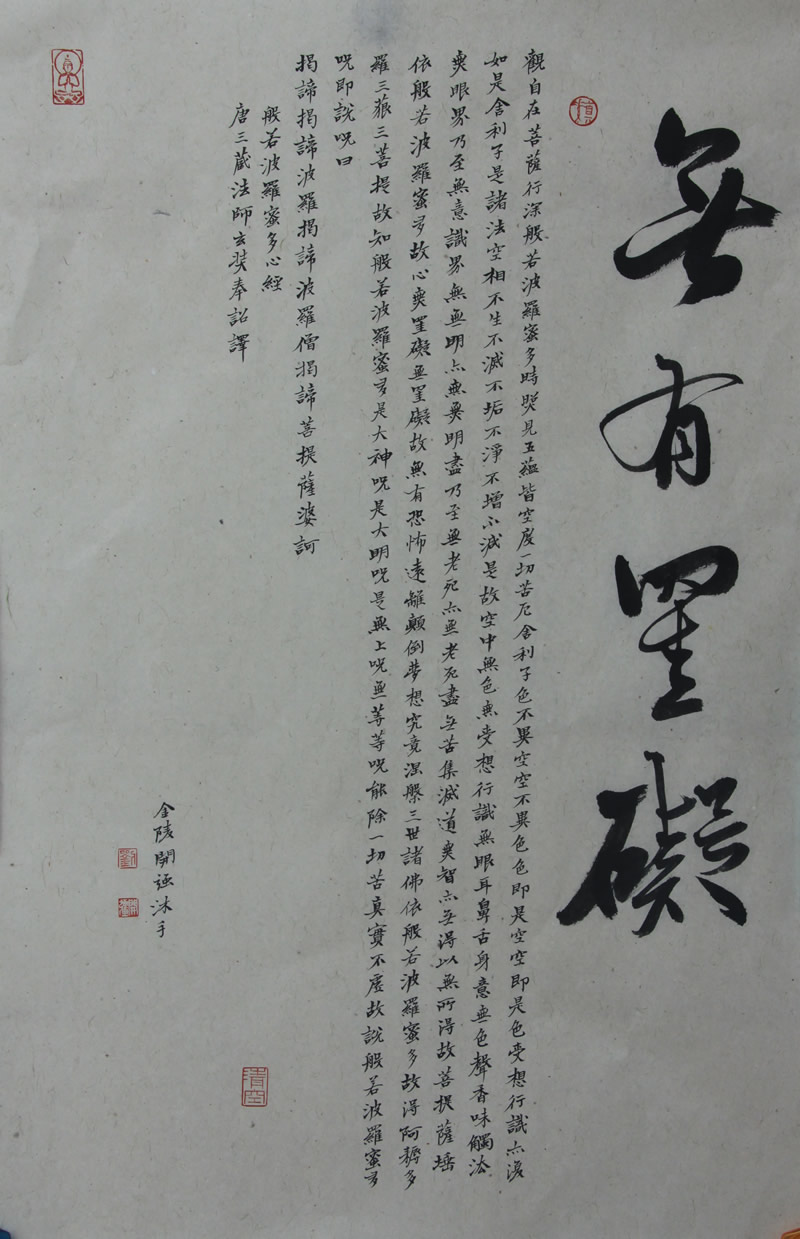 無有罣礙
觀自在菩薩行深般若波羅蜜多時照見五蘊皆空度一切苦厄舍利子色不異空空不異色色即是空空即是色受想行識亦復
如是舍利子是諸法空相不生不滅不垢不淨不增不減是故空中無色無受想行識無眼耳鼻舌身意無色聲香味觸法
無眼界乃至無意識界無無明亦無無明盡乃至無老死亦無老死盡無苦集滅道無智亦無得以無所得故菩提薩埵
依般若波羅蜜多故心無罣礙無罣礙故無有恐怖遠離顛倒夢想究竟涅槃三世諸佛依般若波羅蜜多故得阿耨多
羅三藐三菩提故知般若波羅蜜多是大神呪是大明呪是無上呪無等等呪能除一切苦真實不虛故說般若波羅蜜多
呪即說呪曰
揭諦揭諦波羅揭諦波羅僧揭諦菩提薩婆訶
般若波羅蜜多心經
唐三藏法師玄奘奉詔譯
金陵開強沐手
劉
清空